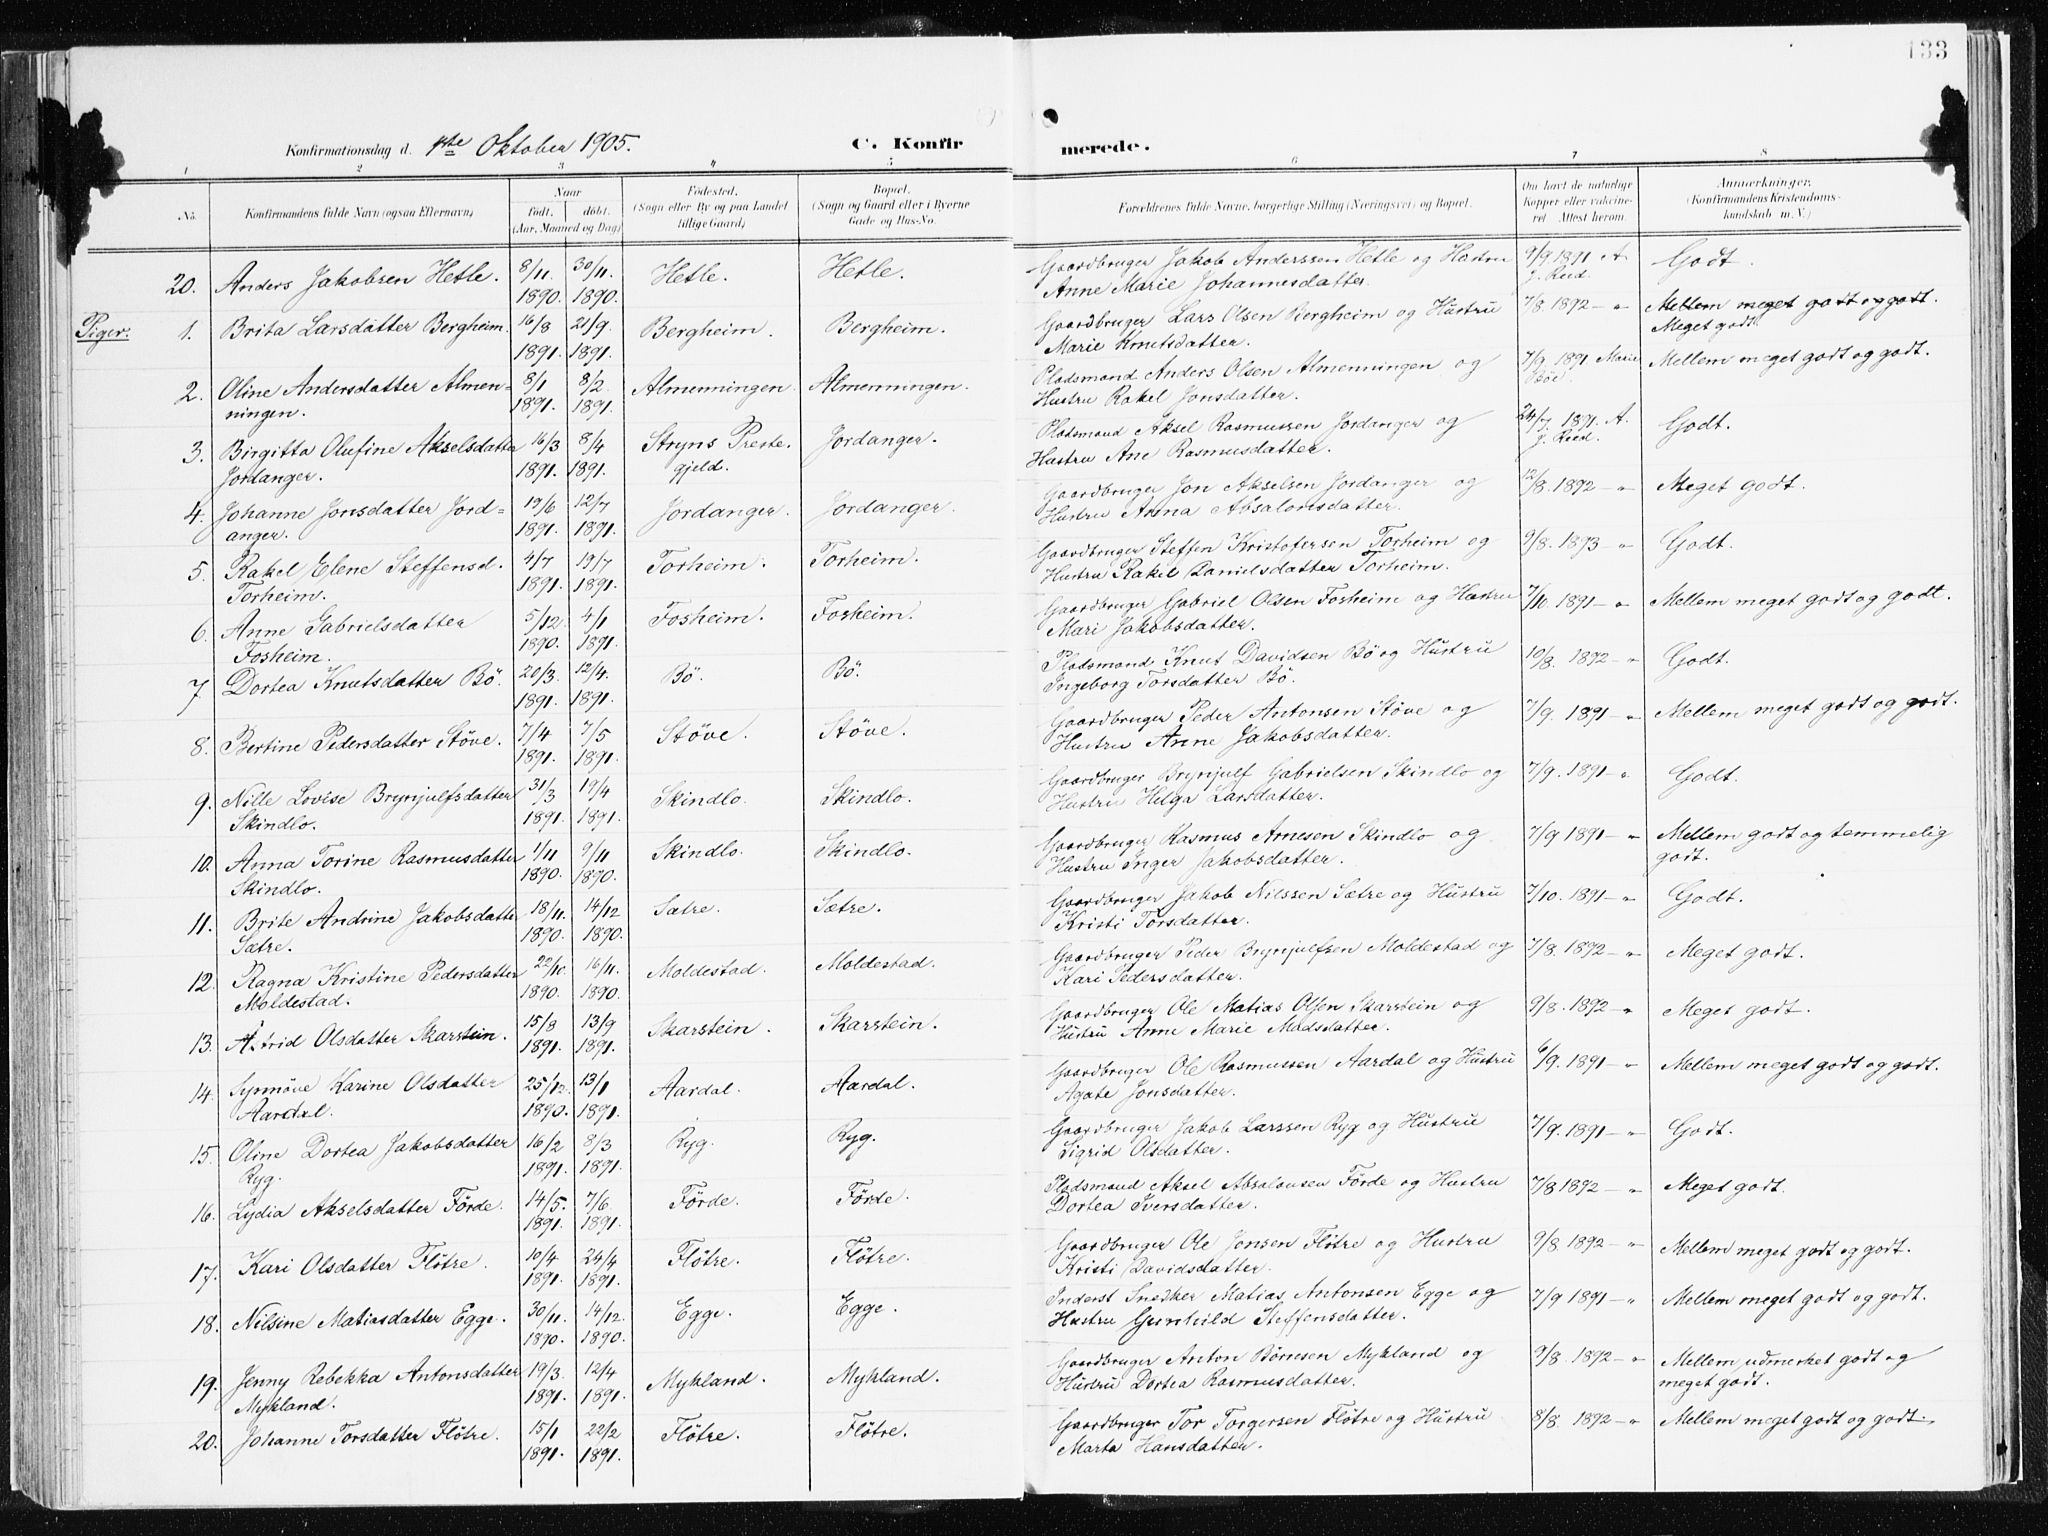 133
Konfirmationsdag d. 1ste Oktober 1905. C. Konfirmerede.
1 2 3 4 5 6 7 8
No. Konfirmandens fulde Navn (ogsaa Efternavn) Naar født, døbt. (Aar, Maaned og Dag) Fødested. (Sogn eller By og paa Landet tillige Gaard) Bopæl. (Sogn og Gaard eller i Byerne Gade og Hus-No. Forældrenes fulde Navne, borgerlige Stilling (Næringsvei) og Bopæl. Om havt de naturlige Kopper eller vaccineret. Attest herom. Anmærkninger. (Konfirmandens Kristendomskundskab m. V.)
20. Anders Jakobsen Hetle. 8/11 1890. 30/11. 1890. Hetle. Hetle. Gaardbruger Jakob Anderssen Hetle og Hustru
Anne Marie Johannesdatter. 9/9 1891 A. J. Reed. Godt.
Piger:
1. Brita Larsdatter Bergheim. 16/8 1891. 21/9. 1891. Bergheim. Bergheim. Gaardbruger Lars Olsen Bergheim og Hustru
Marie Knutsdatter. 7/8. 1892 - " Mellem meget godt og godt.
Meget godt.
2. Oline Andersdatter Almen=
ningen. 8/1 1891. 8/2. 1891. Almenningen. Almenningen. Pladsmand Anders Olsen Almenningen og
Hustru Rakel Jonsdatter. 7/9. 1891 Marie Böe. Mellem meget godt og godt.
3. Birgitta Olufine Akselsdatter
Jordanger. 16/3 1891. 8/4 1891. Stryns Preste-
gjeld. Jordanger. Pladsmand Aksel Rasmussen Jordanger og
Hustru Ane Rasmusdatter. 24/7. 1891. A. J. Reed. Godt.
4. Johanne Jonsdatter Jord=
anger. 19/6 1891. 12/7 1891. Jordanger. Jordanger. Gaardbruger Jon Akselsen Jordanger og
Hustru Anna Absalonsdatter. 12/8. 1892 - " Meget godt.
5. Rakel Elene Steffensd.
Torheim. 4/7 1891. 19/7 1891. Torheim. Torheim. Gaardbruger Steffen Kristofersen Torheim og
Hustru Rakel Danielsdatter Torheim. 9/8. 1893 - " Godt.
6. Anne Gabrielsdatter
Fosheim. 5/12. 1890. 4/1 1891. Fosheim. Fosheim. Gaardbruger Gabriel Olsen Fosheim og Hustru
Mari Jakobsdatter. 7/10. 1891 - " Mellem meget godt og godt.
7. Dortea Knutsdatter Bö. 20/3. 1891. 12/4. 1891. Bö. Bö. Pladsmand Knut Davidsen Bö og Hustru
Ingeborg Torsdatter Bö. 10/8. 1892 - " Godt.
8. Bertine Pedersdatter Stöve. 7/4 1891. 7/5 1891. Stöve. Stöve. Gaardbruger Peder Antonsen Stöve og
Hustru Anne Jakobsdatter. 7/9. 1891 - " Mellem meget godt og godt.
9. Nille Lovise Brynjulfsdatter
Skindlo. 31/3 1891. 19/4 1891. Skindlo. Skindlo. Gaardbruger Brynjulf Gabrielsen Skindlo og
Hustru Helga Larsdatter. 7/9. 1891 - " Godt.
10. Anna Torine Rasmusdatter
Skindlo. 1/11 1890. 9/11 1890. Skindlo. Skindlo. Gaardbruger Rasmus Arnesen Skindlo og
Hustru Inger Jakobsdatter. 7/9 1891 - " Mellem godt og temmelig
godt.
11. Brite Andrine Jakobsdatter
Sætre. 18/11. 1890. 14/12 1890. Sætre. Sætre. Gaardbruger Jakob Nilssen Sætre og Hustru
Kristi Torsdatter. 7/10. 1891 - " Godt.
12. Ragna Kristine Pedersdatter
Moldestad. 22/10. 1890. 16/11. 1890. Moldestad. Moldestad. Gaardbruger Peder Brynjulfsen Moldestad og
Kari Pedersdatter. 7/8. 1892 - " Meget godt.
13. Astrid Olsdatter Skarstein. 15/8 1891. 13/9 1891. Skarstein. Skarstein. Gaardbruger Ole Matias Olsen Skarstein og
Hustru Anne Marie Madsdatter. 9/8. 1892 - " Meget godt.
14. Synnöve Karine Olsdatter
Aardal. 25/12. 1890. 13/1 1891. Aardal. Aardal. Gaardbruger Ole Rasmussen Aardal og Hustru
Agate Jonsdatter. 6/9. 1891 - " Mellem meget godt og godt.
15. Oline Dortea Jakobsdatter
Ryg. 16/2 1891. 8/3 1891. Ryg. Ryg. Gaardbruger Jakob Larssen Ryg og Hustru
Sigrid Olsdatter. 7/9. 1891 - " Godt.
16. Lydia Akselsdatter Förde. 14/5. 1891. 7/6. 1891. Förde. Förde. Pladsmand Aksel Absalonsen Förde og Hustru
Dortea Iversdatter. 7/8 1892 - " Meget godt.
17. Kari Olsdatter Flötre. 10/4 1891. 24/4 1891. Flötre. Flötre. Gaardbruger Ole Jonsen Flötre og Hustru
Kristi Davidsdatter. 9/8. 1892 - " Mellem meget godt og godt.
18. Nilsine Matiasdatter Egge. 30/11. 1890. 14/12. 1890. Egge. Egge. Inderst Snedker Matias Antonsen Egge og
Hustru Gunhild Steffensdatter. 7/9 1891 - " Mellem meget godt og godt.
19. Jenny Rebekka Antonsdatter
Mykland. 19/3. 1891. 12/4 1891. Mykland. Mykland. Gaardbruger Anton Börresen Mykland og
Hustru Dortea Rasmusdatter. 9/8. 1892 - " Mellem udmerket godt og
meget godt.
20. Johanne Torsdatter Flötre. 15/1 1891. 22/2 1891. Flötre. Flötre. Gaardbruger Tor Torgersen Flötre og Hustru
Marta Hansdatter. 8/8. 1892 - " Mellem meget godt og godt.